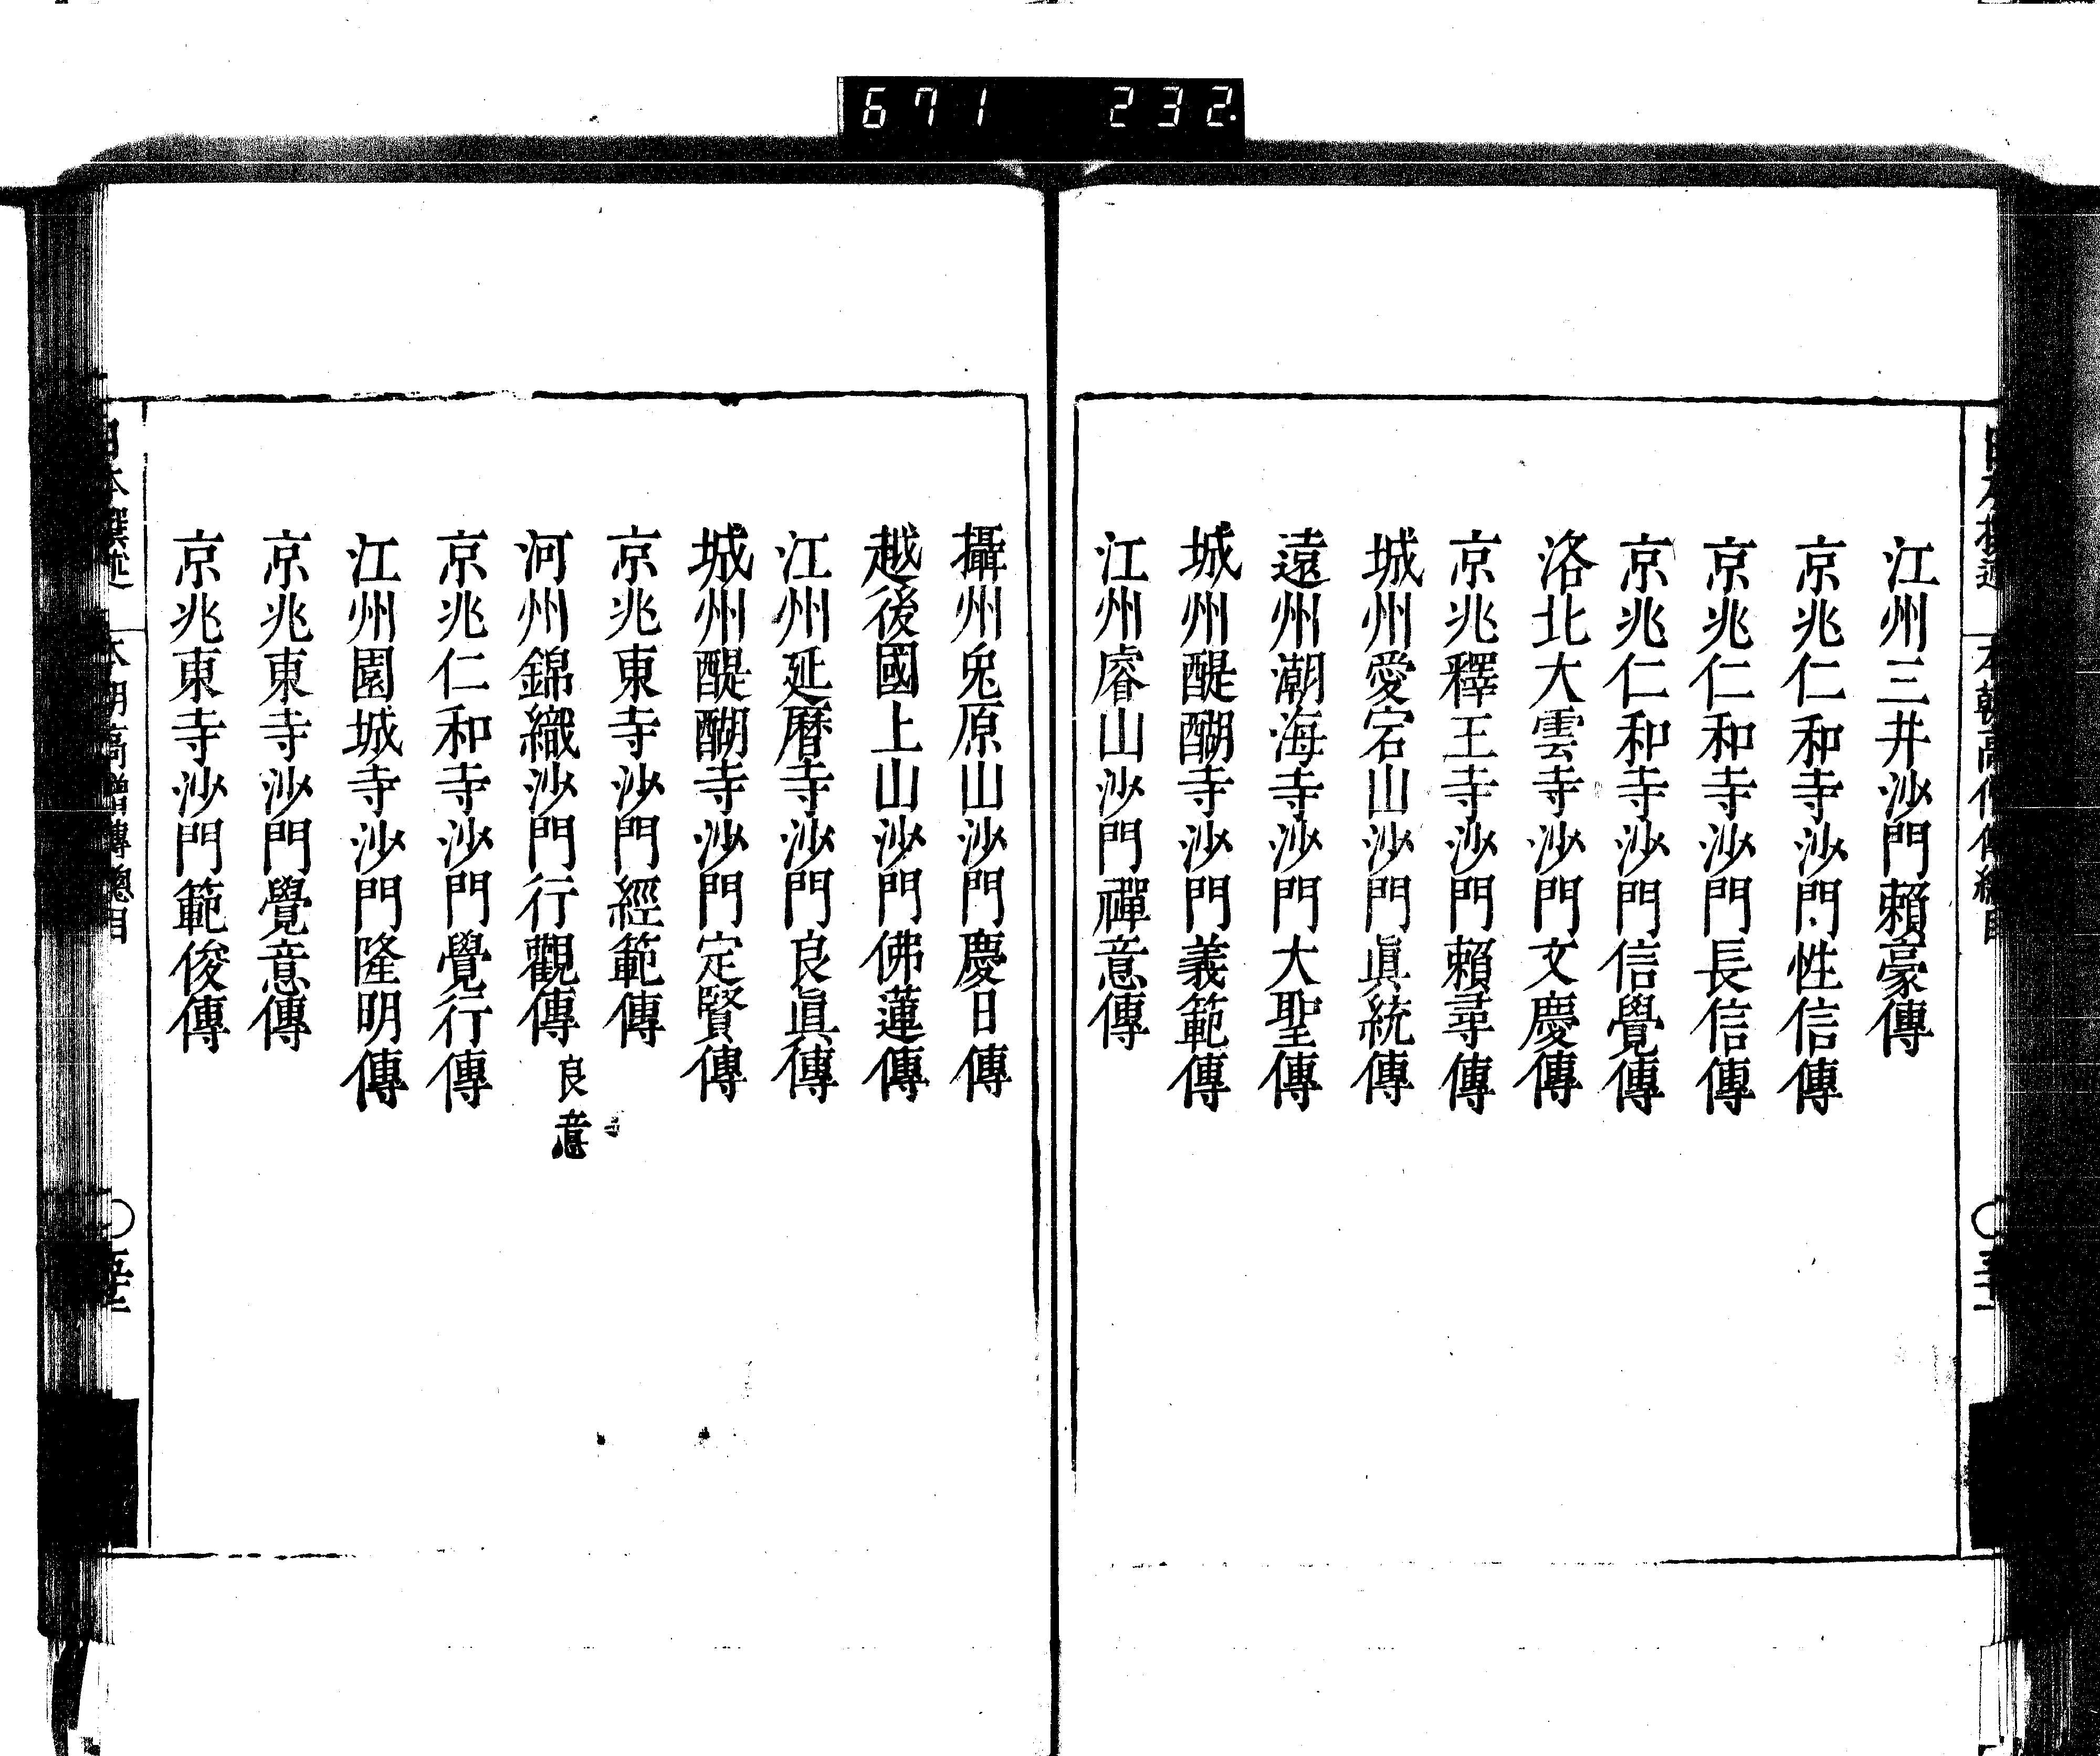 671 232
江州三井沙門賴豪傳
京兆仁和寺沙門性信傳
京兆仁和寺沙門長信傳
京兆仁和寺沙門信覺傳
洛北大雲寺沙門文慶傳
京兆釋王寺沙門賴尋傳
城州愛宕山沙門眞統傳
遠州潮海寺沙門大聖傳
城州醍醐寺沙門義範傳
江州睿山沙門禪意傳
攝州兔原山沙門慶日傳
越後國上山沙門佛蓮傳
江州延曆寺沙門良眞傳
城州醍醐寺沙門定賢傳
京兆東寺沙門經範傳
河州錦織沙門行觀傳 良意
京兆仁和寺沙門覺行傳
江州園城寺沙門隆明傳
京兆東寺沙門覺意傳
京兆東寺沙門範俊傳
日本撰述 本朝高僧傳總目